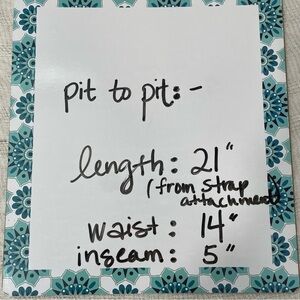 pit to pit: -
length: 21"
(from strap
attachment)
waist: 14"
inseam: 5"